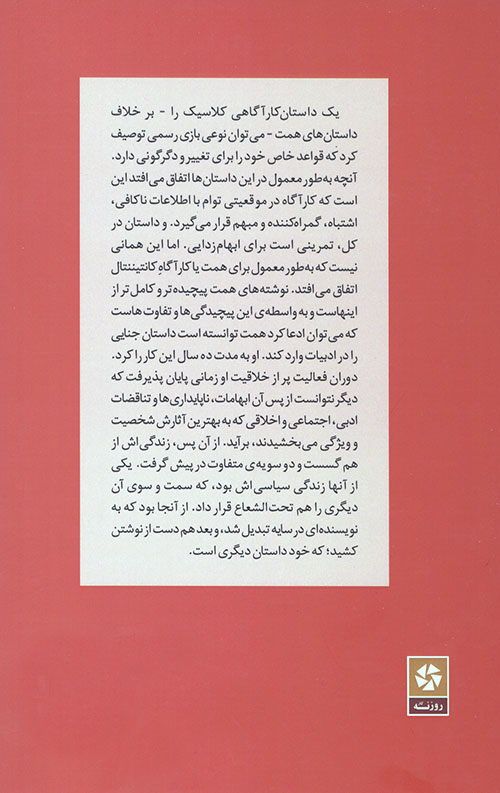 یک داستان‌کارآگاهی کلاسیک را - بر خلاف
داستان‌های همت - می‌توان نوعی بازی رسمی توصیف
کرد که قواعد خاص خود را برای تغییر و دگرگونی دارد.
آنچه به‌طور معمول در این داستان‌ها اتفاق می‌افتد این
است که کارآگاه در موقعیتی توام با اطلاعات ناکافی،
اشتباه، گمراه‌کننده و مبهم قرار می‌گیرد. و داستان در
کل، تمرینی است برای ابهام‌زدایی. اما این همانی
نیست که به‌طور معمول برای همت یا کارآگاهِ کانتیننتال
اتفاق می‌افتد. نوشته‌های همت پیچیده‌تر و کامل‌تر از
اینهاست و به واسطه‌ی این پیچیدگی‌ها و تفاوت هاست
که می‌توان ادعا کرد همت توانسته است داستان جنایی
را در ادبیات وارد کند. او به مدت ده سال این کار را کرد.
دوران فعالیت پر از خلاقیت او زمانی پایان پذیرفت که
دیگر نتوانست از پس آن ابهامات، ناپایداری‌ها و تناقضات
ادبی، اجتماعی و اخلاقی که به بهترین آثارش شخصیت
و ویژگی می‌بخشیدند، برآید. از آن پس، زندگی‌اش از
هم گسست و دو سویه‌ی متفاوت در پیش گرفت. یکی
از آنها زندگی سیاسی‌اش بود، که سمت و سوی آن
دیگری را هم تحت‌الشعاع قرار داد. از آنجا بود که به
نویسنده‌ای در سایه تبدیل شد، و بعد هم دست از نوشتن
کشید؛ که خود داستان دیگری است.
روزنه